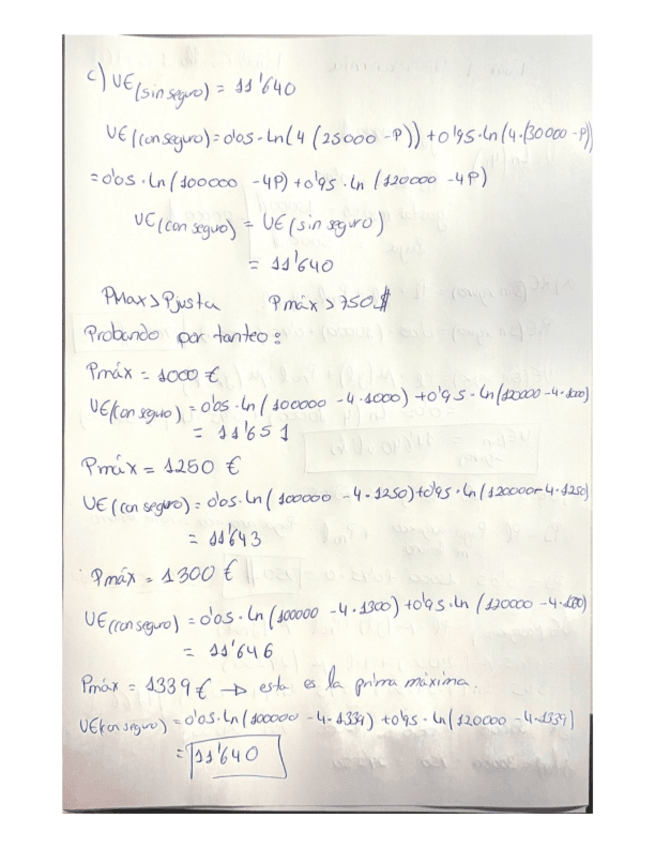 c) UE(sin seguro) = 11'640
UE(con seguro) = 0'05·Ln(4(25000-P)) + 0'95·Ln(4·(30000-P))
= 0'05·Ln(100000 - 4P) + 0'95·Ln(120000 - 4P)
UE(con seguro) = UE(sin seguro)
= 11'640
PMax > Pjusta Pmáx > 750$
Probando por tanteo:
Pmáx = 1000 €
UE(con seguro) = 0'05·Ln(100000 - 4·1000) + 0'95·Ln(120000 - 4·1000)
= 11'651
Pmáx = 1250 €
UE(con seguro) = 0'05·Ln(100000 - 4·1250) + 0'95·Ln(120000 - 4·1250)
= 11'643
Pmáx = 1300 €
UE(con seguro) = 0'05·Ln(100000 - 4·1300) + 0'95·Ln(120000 - 4·1300)
= 11'646
Pmáx = 1339 € → esta es la prima máxima.
UE(con seguro) = 0'05·Ln(100000 - 4·1339) + 0'95·Ln(120000 - 4·1339)
= 11'640